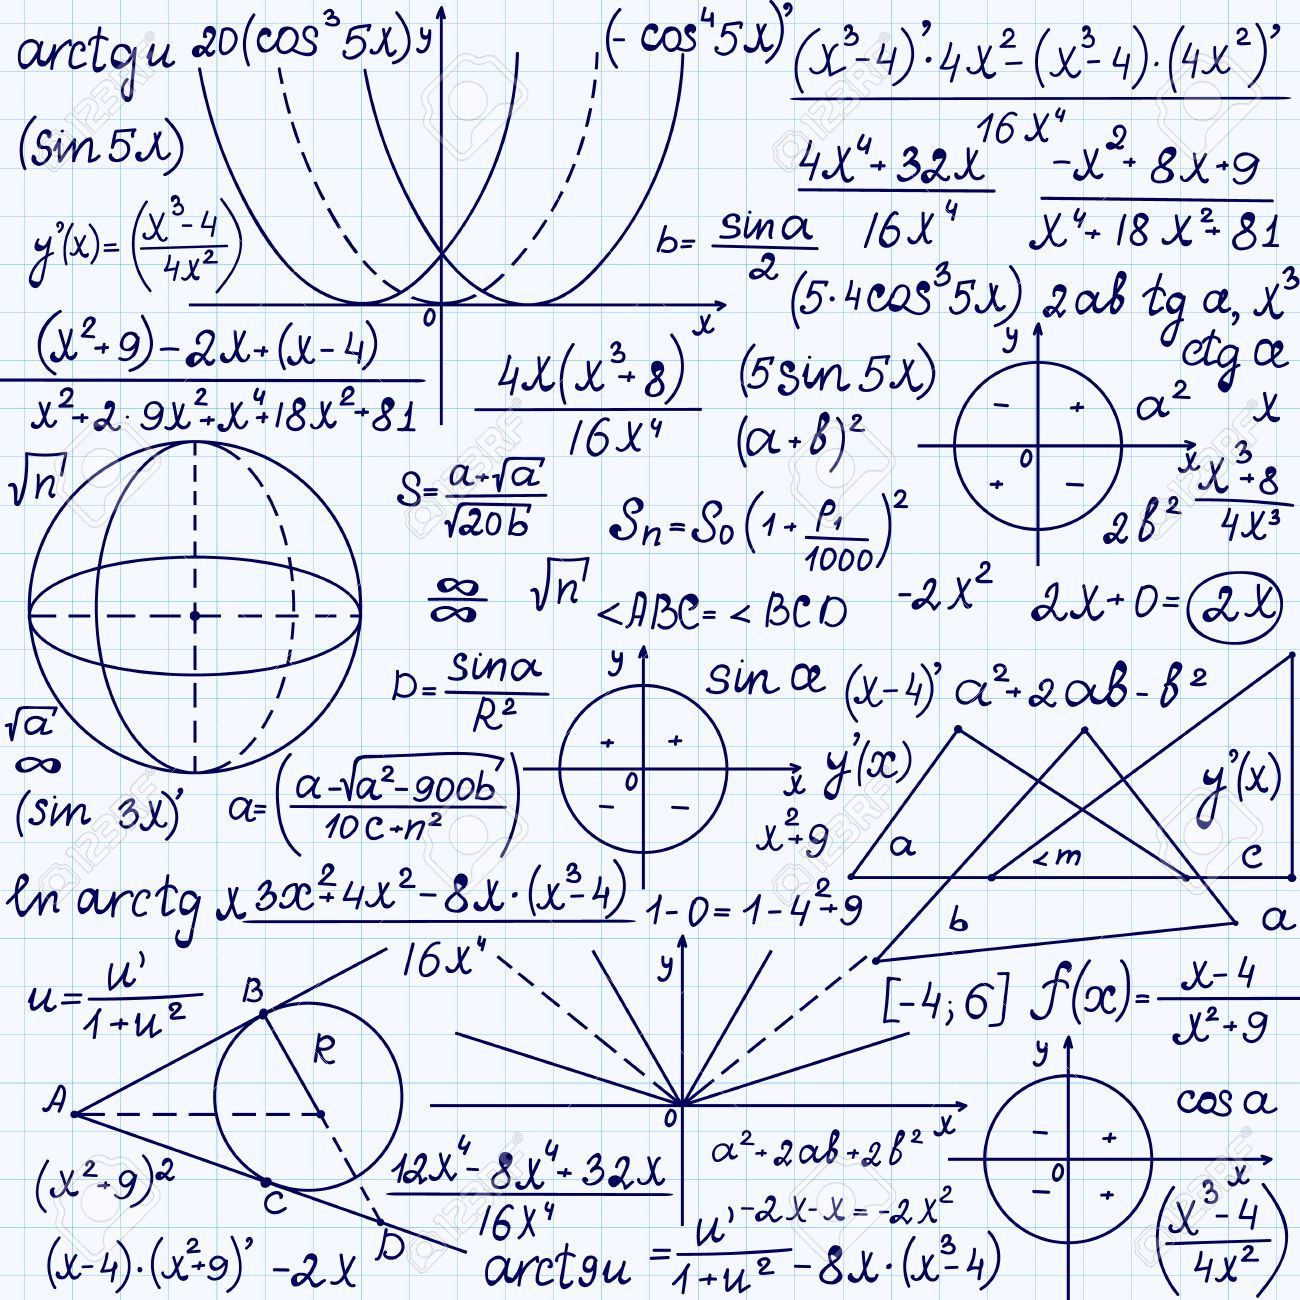 arctg u 20(cos³5x) y (-cos⁴5x)'
(x³-4)'·4x²-(x³-4)·(4x²)'
16x⁴
(sin 5x)
4x⁴+32x
16x⁴
-x²+8x+9
x⁴+18x²+81
y'(x)=(x³-4/4x²)
b=sin a/2
0 x
(5·4cos³5x) 2ab tg α, x³
ctg α
(x²+9)-2x+(x-4)
x²+2·9x²+x⁴+18x²+81
4x(x³+8)
16x⁴
(5sin 5x)
(a+b)²
y
- +
0 x
+ -
a² x
x³+8
4x³
2b²
√n
S=a+√a/√20b
Sn=S0(1+P1/1000)²
∞/∞
√n
<ABC=<BCD
-2x² 2x+0=2x
D=sinα/R²
y
+ +
0 x
- -
sin α (x-4)' a²+2ab-b²
√a
∞
(sin 3x)'
a=(a-√a²-900b/10c+n²)
y'(x)
x²+9
a <m c
b a
y'(x)
ln arctg x
3x²+4x²-8x·(x³-4)
16x⁴
1-0=1-4²+9
u=u'/1+u²
B
R
A
C
D
y
0 x
[-4;6] f(x)=x-4/x²+9
y
- +
0 x
- +
cos a
(x²+9)²
12x⁴-8x⁴+32x
16x⁴
a²+2ab+2b²
-2x-x=-2x²
(x³-4/4x²)
(x-4)·(x²+9)' -2x
arctgu =u'/1+u² -8x·(x³-4)
123RF